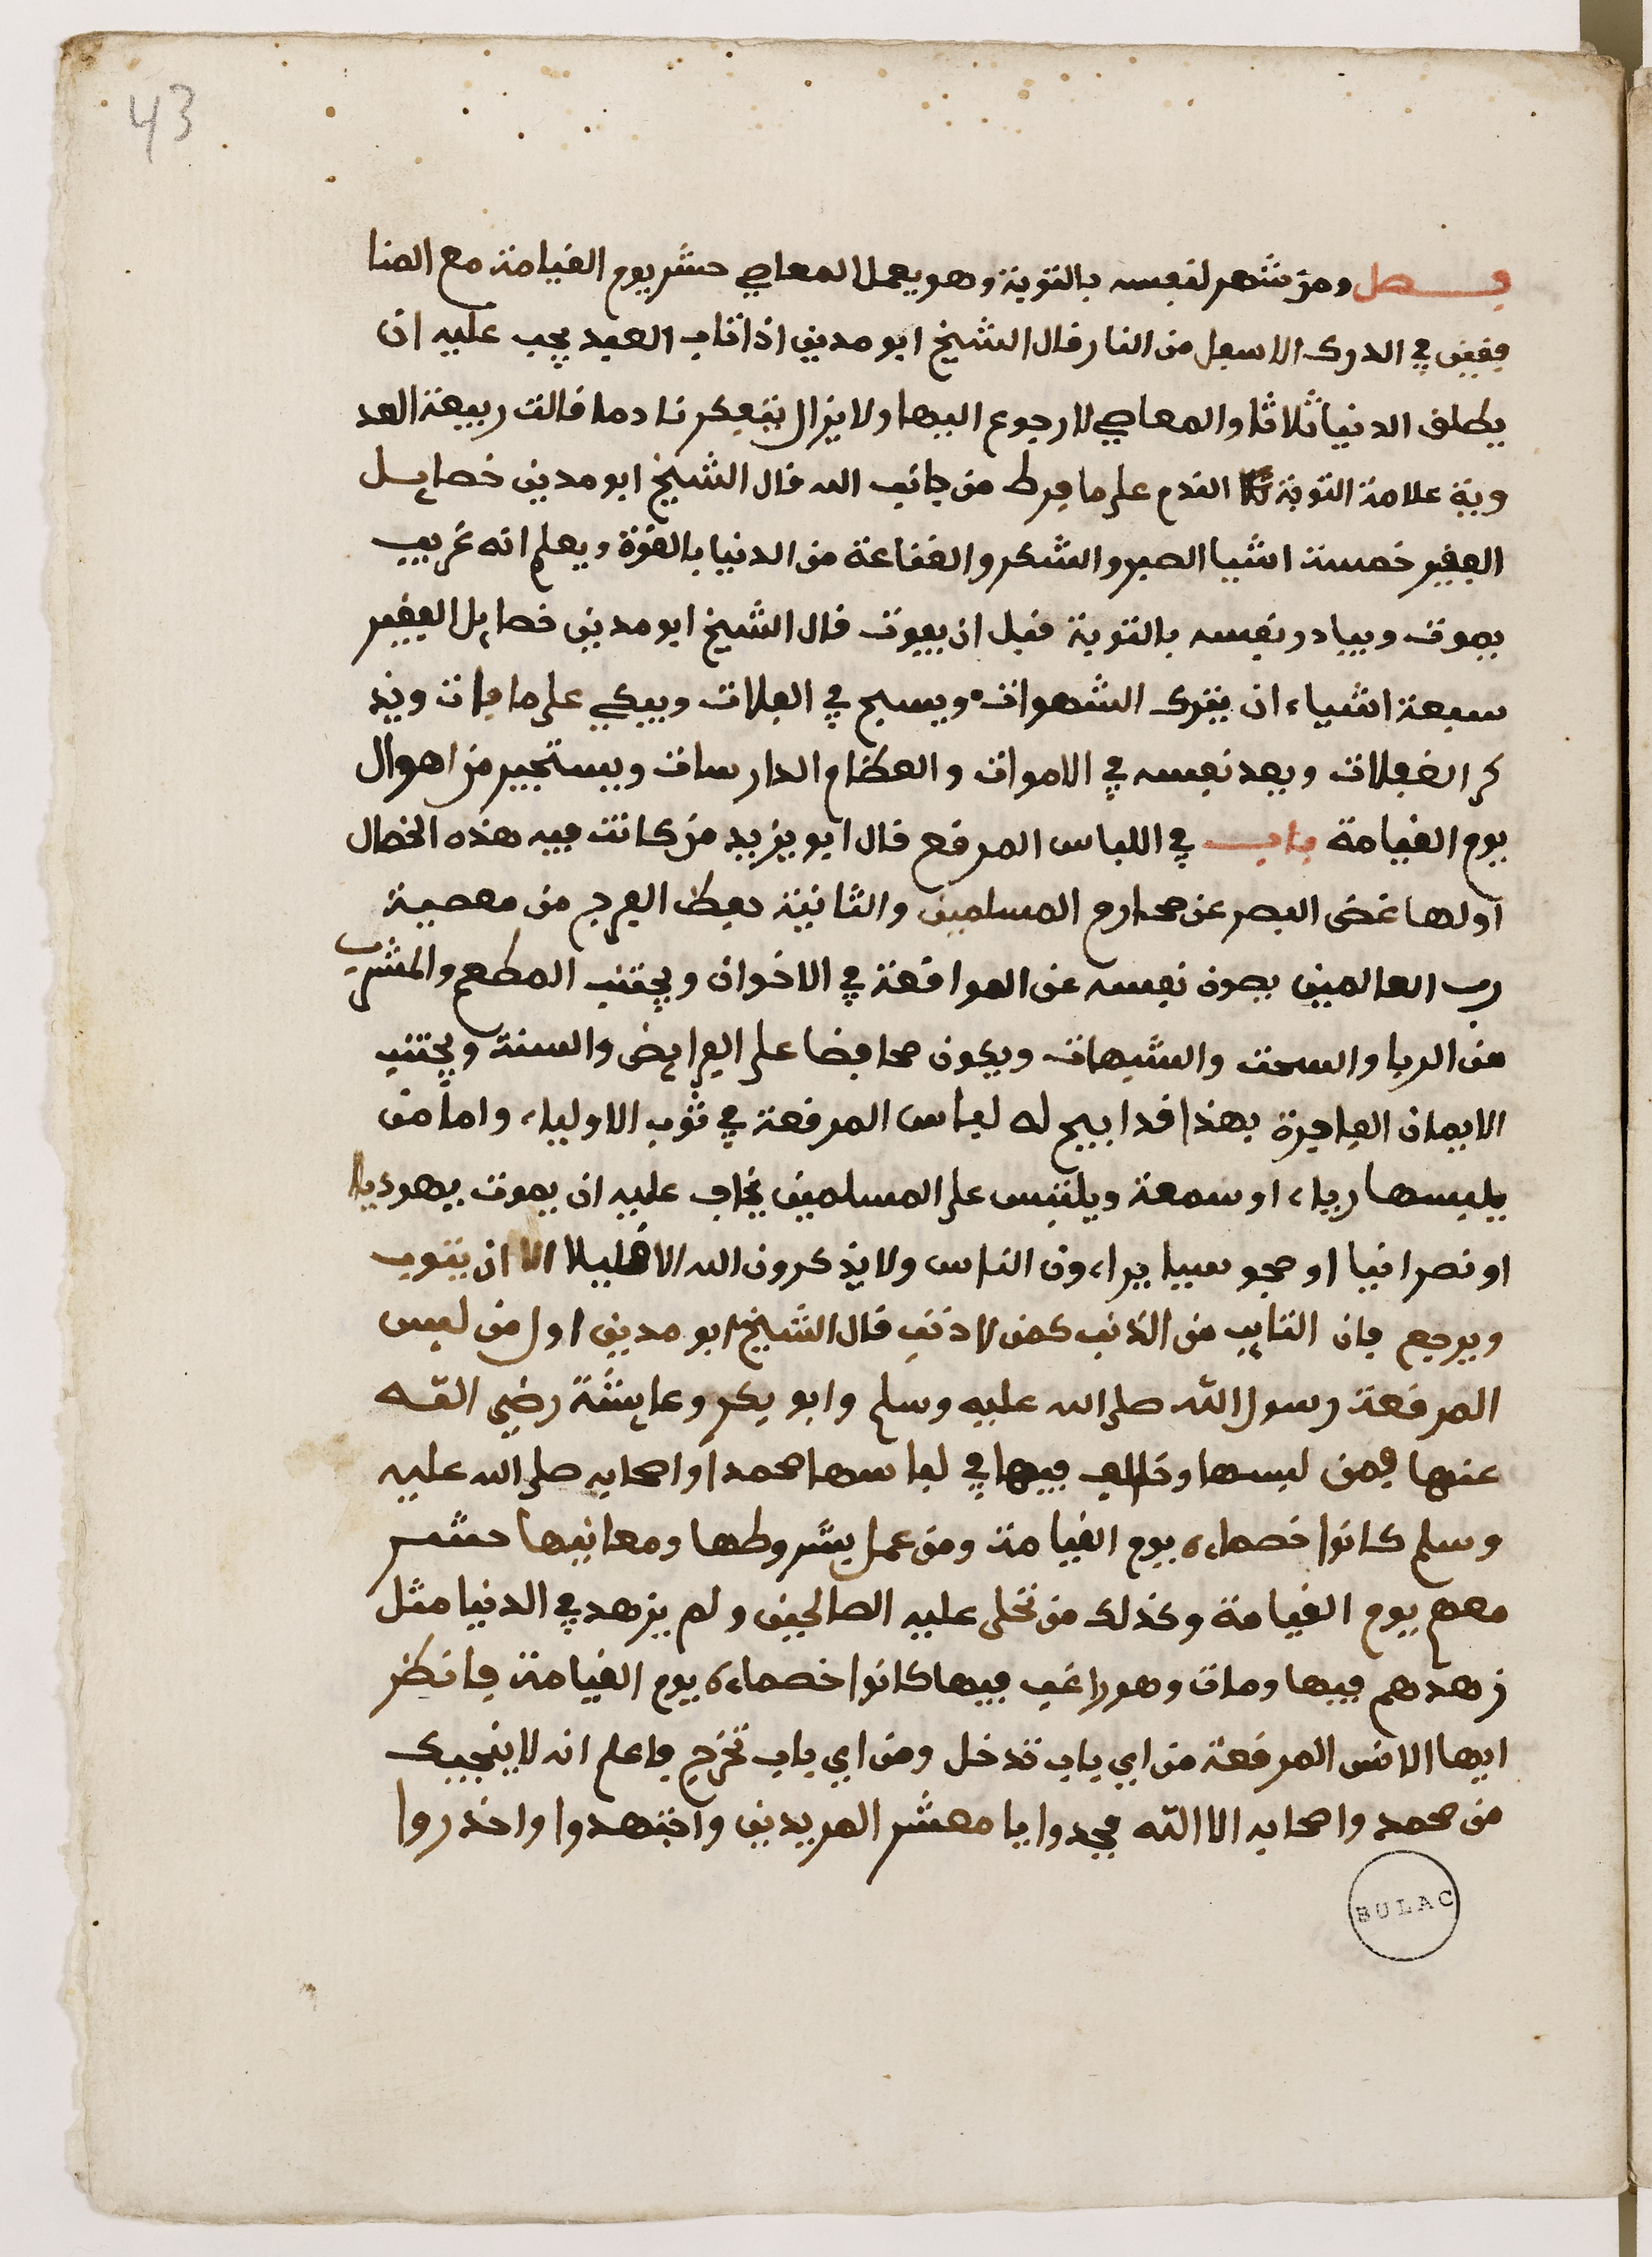 43
فصل ومن شهر لنفسه بالتوبة وهو يعمل المعاصي حشر يوم القيامة مع المنا
فقين في الدرك الاسفل من النار قال الشيخ ابو مدين اذا تاب العبد يجب عليه ان
يطلق الدنيا ثلاثا والمعاصي لا رجوع اليها ولا يزال يتفكر نادما قالت ربيعة العد
وية علامة التوبة الندم على ما فرط من جانب الله قال الشيخ ابو مدين خصايل
الفقير خمسة اشيا الصبر والشكر والقناعة من الدنيا بالقوة ويعلم انه غريب
يموت ويبادر نفسه بالتوبة قبل ان يموت قال الشيخ ابو مدين خصايل الفقير
سبعة اشياء ان يترك الشهوات ويسيح في الفلات ويبكي على ما فات ويذ
كر الغفلات ويعد نفسه في الاموات والعظام الدارسات ويستجير من اهوال
يوم القيامة باب في اللباس المرقع قال ابو يزيد من كانت فيه هذه الخصال
اولها غض البصر عن محارم المسلمين والثانية حفظ الفرج من معصية
رب العالمين يصون نفسه عن الموافقة في الاخوان ويجتنب المطعم والمشرب
من الربا والسحت والشبهات ويكون محافضا على الفرايض والسنة ويجتنب
الايمان الفاجرة بهذا قد ابيح له لباس المرقعة في ثوب الاولياء واما من
يلبسها رياء او سمعة ويلتبس على المسلمين يخاف عليه ان يموت يهوديا
او نصرانيا او مجوسيا يراءون الناس ولا يذكرون الله الا قليلا الا ان يتوب
ويرجع فان التايب من الذنب كمن لا ذنب قال الشيخ ابو مدين اول من لبس
المرقعة رسول الله صلى الله عليه وسلم وابو بكر وعايشة رضي الله
عنها فمن لبسها وخالف فيها في لباسها محمدا واصحابه صلى الله عليه
وسلم كانوا خصماءه يوم القيامة ومن عمل بشروطها ومعانيها حشر
معهم يوم القيامة وكذلك من تحلى عليه الصالحين ولم يزهد في الدنيا مثل
زهدهم فيها ومات وهو راغب فيها كانوا خصماءه يوم القيامة فانظر
ايها الابس المرقعة من اي باب تدخل ومن اي باب تخرج واعلم انه لا ينجيك
من محمد واصحابه الا الله فجدوا يا معشر المريدين واجتهدوا واحذروا
BULAC